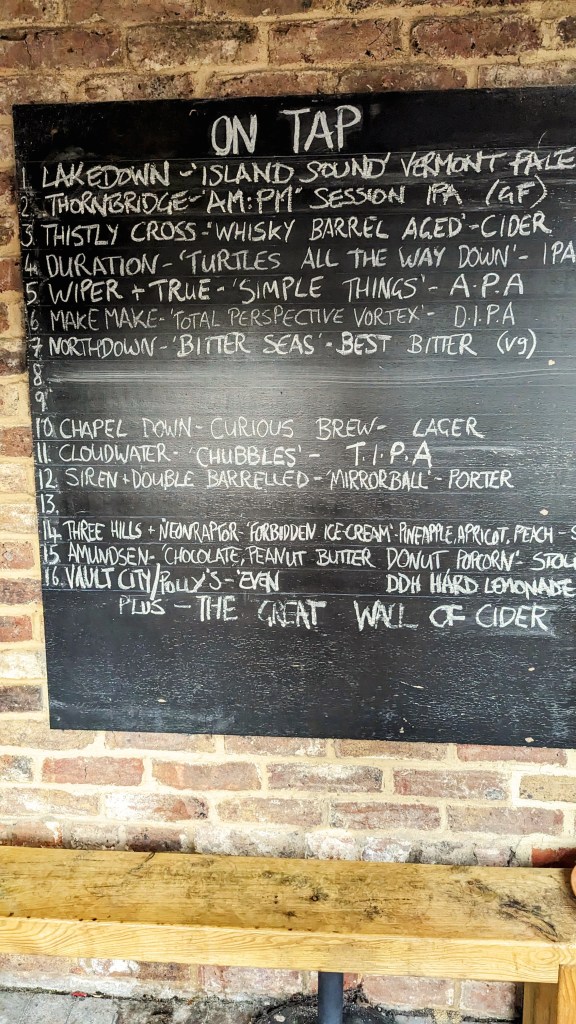 ON TAP
1. LAKEDOWN - 'ISLAND SOUND' VERMONT PALE
2. THORNBRIDGE - 'AM:PM' SESSION IPA (GF)
3. THISTLY CROSS - 'WHISKY BARREL AGED' - CIDER
4. DURATION - 'TURTLES ALL THE WAY DOWN' - IPA
5. WIPER + TRUE - 'SIMPLE THINGS' - A.P.A
6. MAKE MAKE - 'TOTAL PERSPECTIVE VORTEX' - D.I.P.A
7 NORTHDOWN - 'BITTER SEAS' - BEST BITTER (vg)
8
9
10. CHAPEL DOWN - CURIOUS BREW - LAGER
11. CLOUDWATER - 'CHUBBLES' - T.I.P.A
12. SIREN + DOUBLE BARRELLED - 'MIRRORBALL' - PORTER
13.
14. THREE HILLS + NEONRAPTOR 'FORBIDDEN ICE-CREAM' - PINEAPPLE, APRICOT, PEACH - S
15 AMUNDSEN - 'CHOCOLATE, PEANUT BUTTER DONUT POPCORN' - STOU
16. VAULT CITY/POLLY'S - 'EVEN DDH HARD LEMONADE
PLUS - THE GREAT WALL OF CIDER